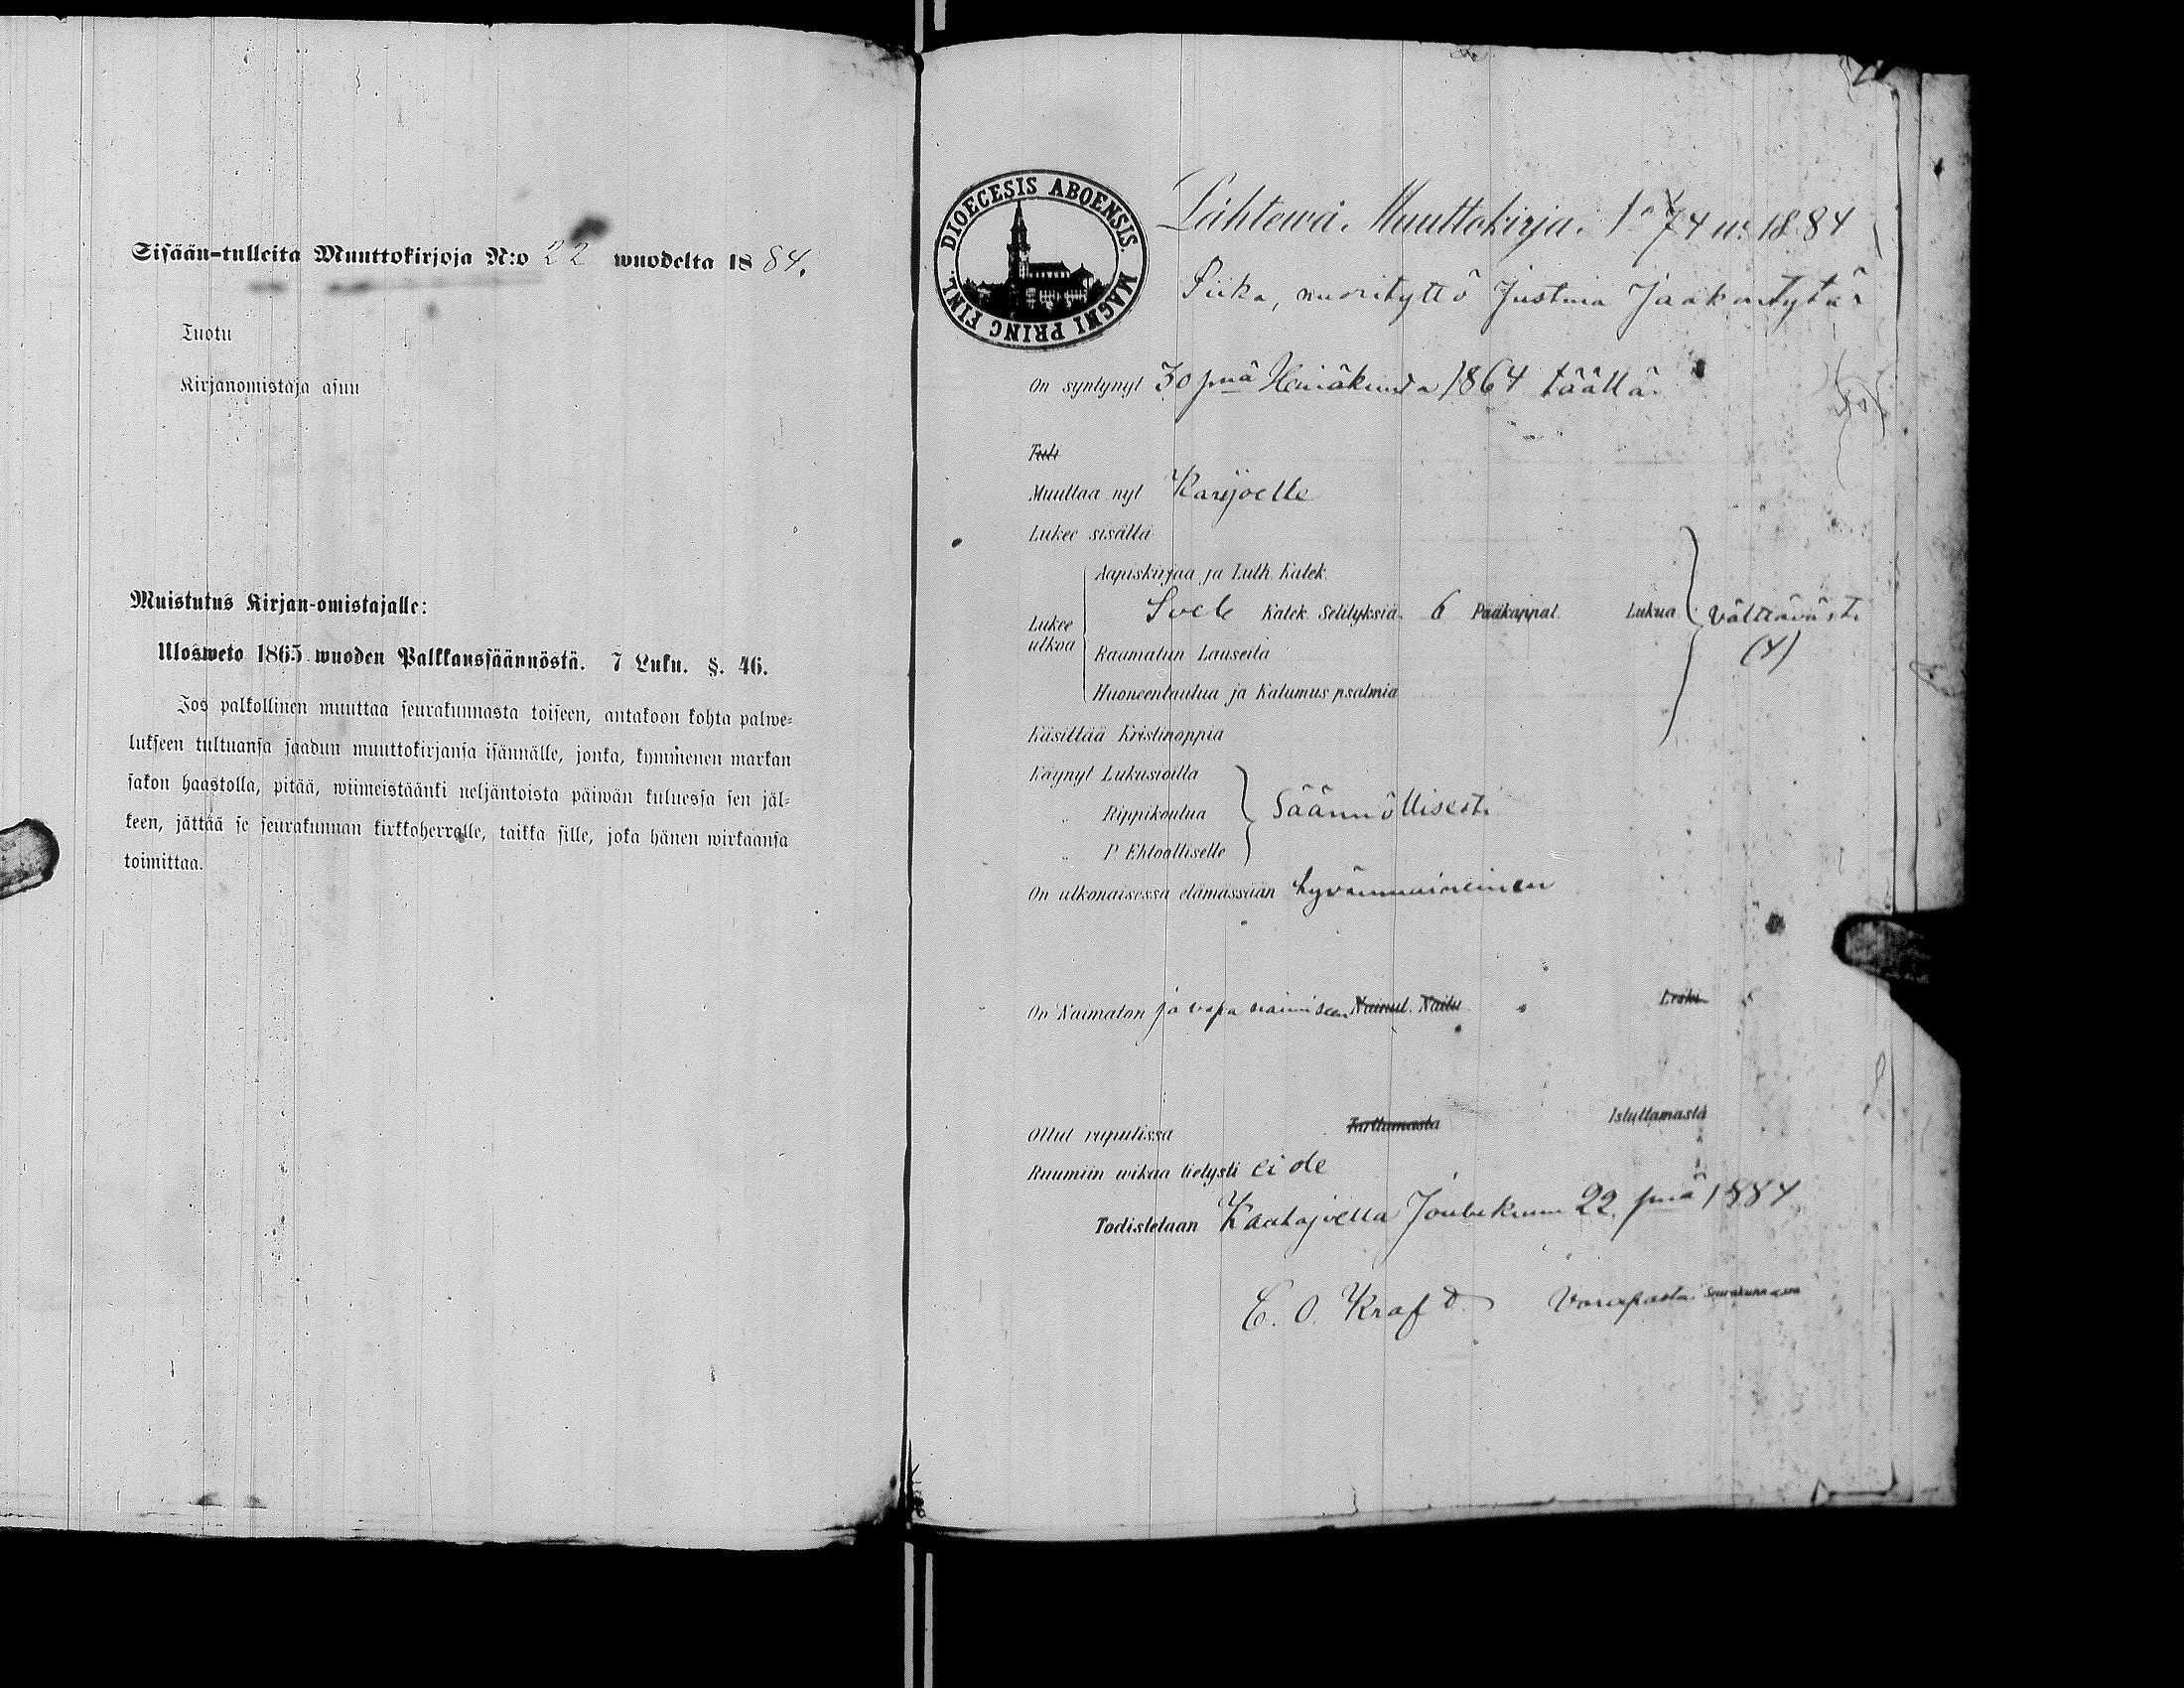 Sisään-tulleita Muuttokirjoja N:o 22 wuodelta 1884.
Tuotu
Kirjanomistaja asuu
Muistutus Kirjan-omistajalle:
Ulosweto 1865 wuoden Palkkaussäännöstä. 7 Luku. §. 46.
Jos palkollinen muuttaa seurakunnasta toiseen, antakoon kohta palwe-
lukseen tultuansa saadun muuttokirjansa isännälle, jonka, kymmenen markan
sakon haastolla, pitää, wiimeistäänki neljäntoista päiwän kuluessa sen jäl-
keen, jättää se seurakunnan kirkkoherralle, taikka sille, joka hänen wirkaansa
toimittaa.
DIOECESIS ABOENSIS. MAGNI PRINC FINL.
Lähtewä Muuttokirja 74 1884
Piika, nuorityttö Justina Jaakontytär
On syntynyt 30 pnä Heinäkuuta 1864 täällä.
Tuli
Muuttaa nyt Karijoelle
Lukee sisältä
Aapiskirjaa ja Luth. Katek.
Lukee ulkoa Katek. Selityksiä. 6 Pääkappal. Lukua välttävästi
Raamatun Lauseita (4)
Huoneentaulua ja Katumus psalmia
Käsittää Kristinoppia
Käynyt Lukusioilla
" Rippikoulua Säännöllisesti
" P. Ehtoolliselle
On ulkonaisessa elämässään hyvänmaineinen
On Naimaton ja vapa naimiseen Nainut. Naitu Leski
Ollut rupulissa Tarttumasta Istuttamasta
Ruumiin wikaa tietysti ei ole
Todistetaan Joulukuun 22 pnä 1884
E. O. Krafd. Varapastori Seurakunnassa